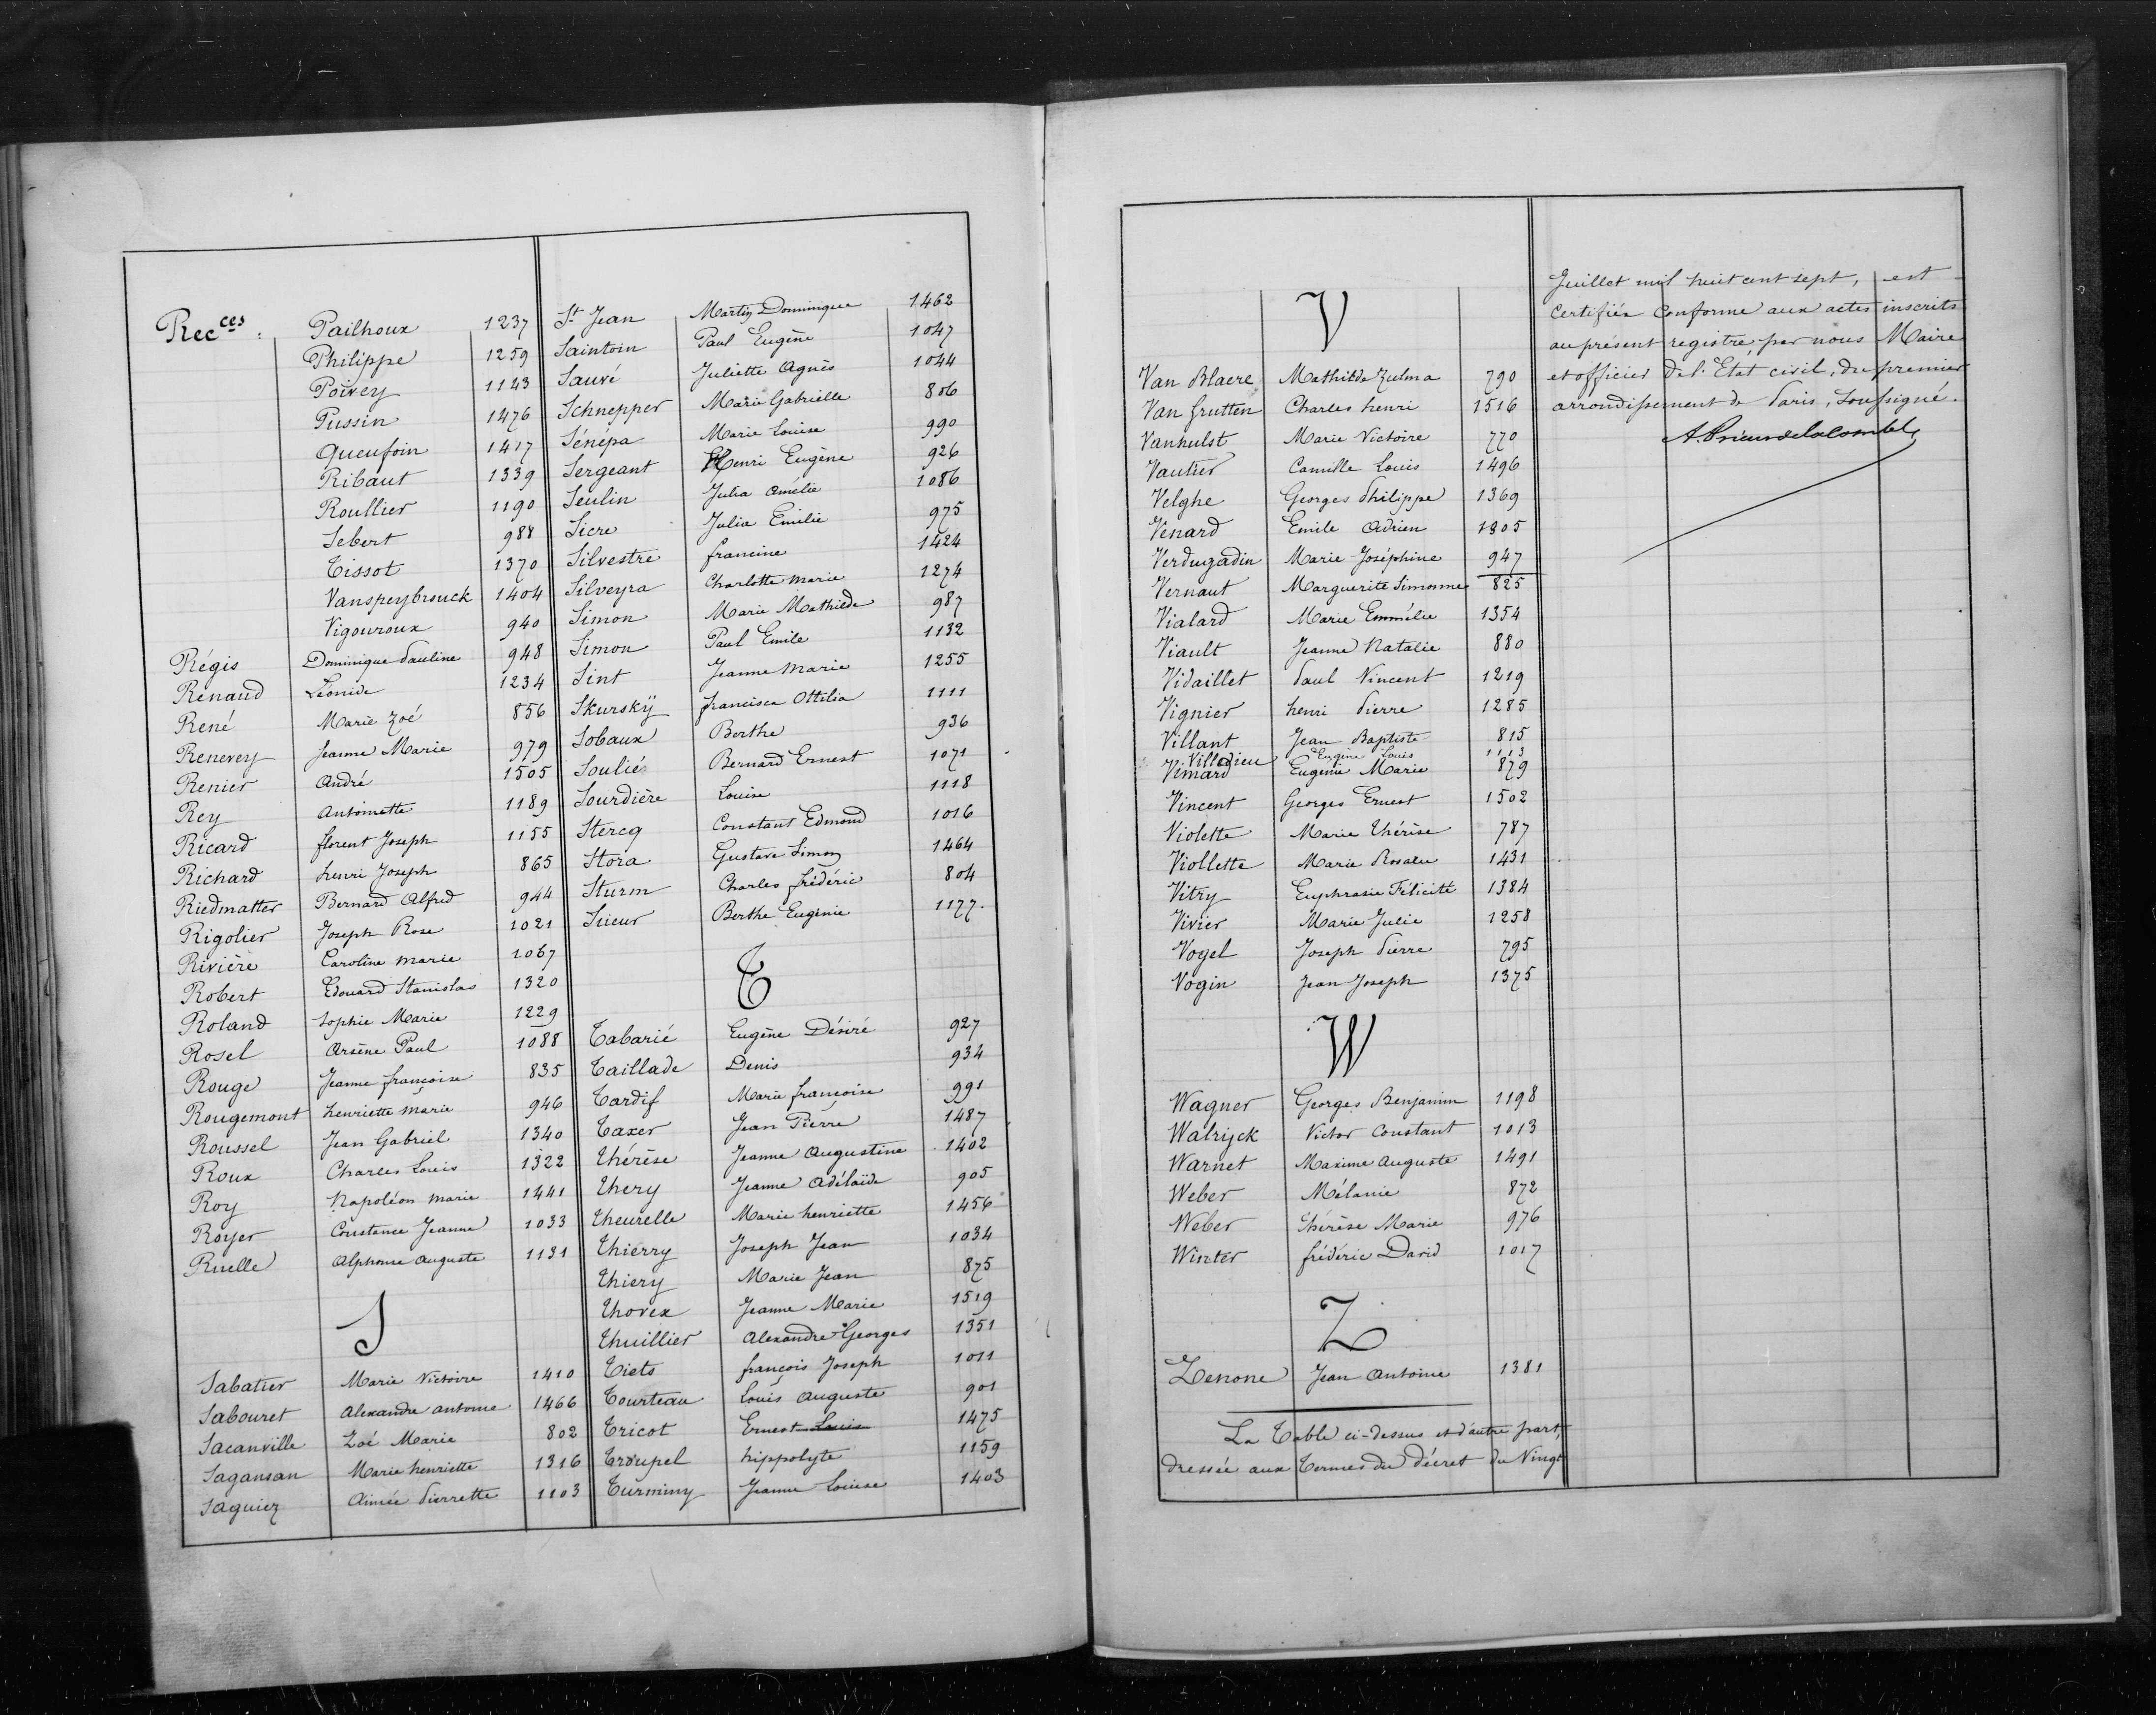 Rec.ces : Pailhoux 1237
Philippe 1259
Poivey 1143
Pussin 1476
Queufoin 1417
Ribaut 1339
Roullier 1190
Sebert 988
Tissot 1370
Vanspeybrouck 1404
Vigouroux 940
Régis Dominique Pauline 948
Renaud Léonide 1234
René Marie Zoé 856
Renevey Jeanne Marie 979
Renier André 1505
Rey Antoinette 1189
Ricard florent Joseph 1155
Richard henri Joseph 865
Riedmatter Bernard Alfred 944
Rigolier Joseph Rose 1021
Rivière Caroline marie 1067
Robert Edouard Stanislas 1320
Roland Sophie Marie 1229
Rosel Arsène Paul 1088
Rouge Jeanne françoise 835
Rougemont henriette marie 946
Roussel Jean Gabriel 1340
Roux Charles Louis 1322
Roy Napoléon marie 1441
Royer Constance Jeanne 1033
Ruelle Alphonse Auguste 1131
S
Sabatier Marie Victoire 1410
Sabouret Alexandre antoine 1466
Sacanville Zoé Marie 802
Sagansan Marie henriette 1316
Saguiez Aimée Pierrette 1103
St Jean Martin Dominique 1462
Saintoin Paul Eugène 1047
Sauvé Juliette Agnès 1044
Schnepper Marie Gabrielle 806
Sénépa Marie Louise 990
Sergeant Henri Eugène 926
Seulin Julia Amélie 1086
Sicre Julia Emilie 975
Silvestre francine 1424
Silveyra Charlotte marie 1274
Simon Marie Mathilde 987
Simon Paul Emile 1132
Sint Jeanne Marie 1255
Skurskÿ francisca Ottilia 1111
Sobaux Berthe 936
Soulié Bernard Ernest 1071
Sourdière Louise 1118
Stercq Constant Edmond 1016
Stora Gustave Simon 1464
Sturm Charles frédéric 804
Sueur Berthe Eugénie 1177
T
Tabarié Eugène Désiré 927
Taillade Denis 934
Tardif Marie françoise 991
Taxer Jean Pierre 1487
Thérèse Jeanne Augustine 1402
Thery Jeanne Adélaïde 905
Theurelle Marie henriette 1456
Thierry Joseph Jean 1034
Thiery Marie Jean 875
Thovex Jeanne Marie 1519
Thuillier Alexandre Georges 1351
Tiets françois Joseph 1011
Tourteau Louis Auguste 901
Tricot Ernest Louis 1475
Troupel hippolyte 1159
Turminy Jeanne Louise 1403
V
Van Blaere Mathilde Zulma 790
Van Grutten Charles henri 1516
Vanhulst Marie Victoire 770
Vautier Camille Louis 1496
Velghe Georges Philippe 1369
Venard Emile Adrien 1305
Verdugadin Marie Joséphine 947
Vernaut Marguerite Simonne 825
Vialard Marie Emmélie 1354
Viault Jeanne Natalie 880
Vidaillet Paul Vincent 1219
Vignier henri Pierre 1285
Villant Jean Baptiste 815
Villedieu Eugène Louis 1113
Vimard Eugénie Marie 879
Vincent Georges Ernest 1502
Violette Marie Thérèse 787
Viollette Marie Rosalie 1431
Vitry Euphrasie Félicité 1384
Vivier Marie Julie 1258
Vogel Joseph Pierre 795
Vogin Jean Joseph 1375
W
Wagner Georges Benjamin 1198
Walrijck Victor Constant 1013
Warnet Maxime Auguste 1491
Weber Mélanie 872
Weber Thérèse Marie 976
Winter frédéric David 1017
Z
Zenone Jean Antoine 1381
La Table ci-dessus et d'autre part
dressée aux Termes du décret du Vingt
Juillet mil huit cent sept, est
Certifiée Conforme aux actes inscrits
au présent registre par nous Maire
et officier de l'Etat civil, du premier
arrondissement de Paris, Soussigné.